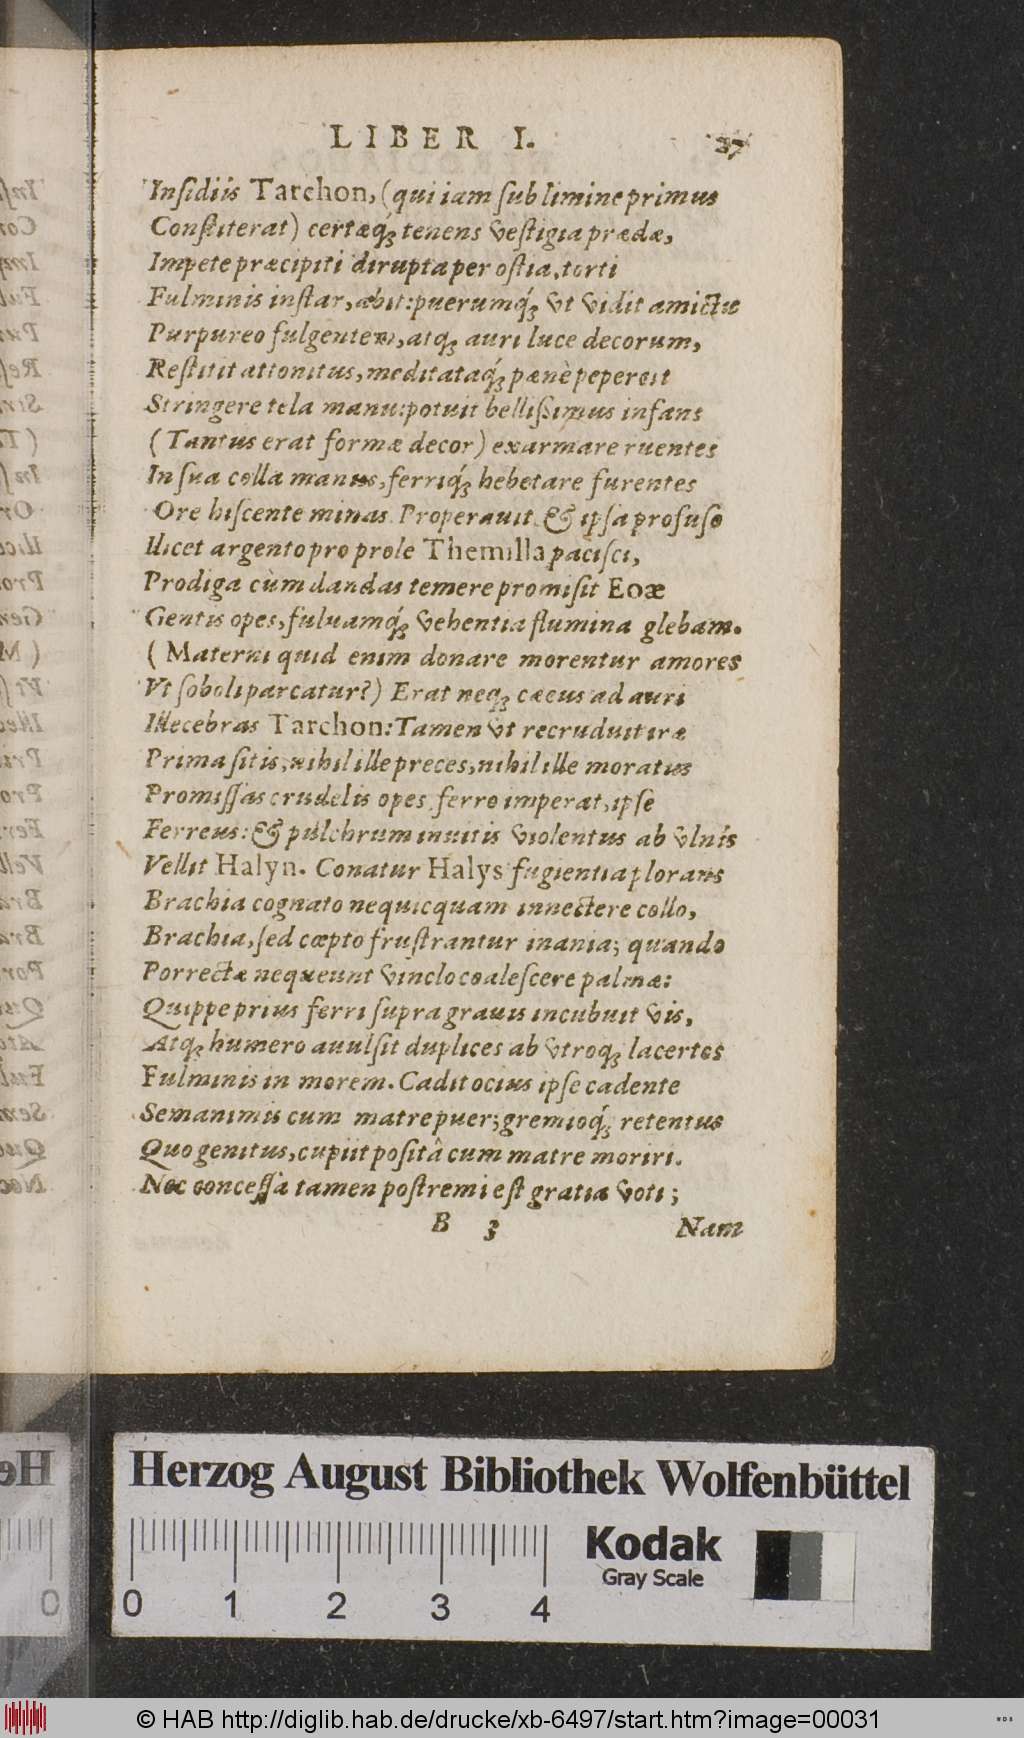 LIBER I. 27
Inſidiis Tarchon, (qui iam ſub limine primus
Conſtiterat) certæq́; tenens veſtigia prædæ,
Impete præcipiti dirupta per oſtia, torti
Fulminis inſtar, abit: puerumq́; vt vidit amictu
Purpureo fulgentem, atq; auri luce decorum,
Reſtitit attonitus, meditataq́; pænè pepercit
Stringere tela manu: potuit belliſsimus infans
(Tantus erat formæ decor) exarmare ruentes
In ſua colla manus, ferriq́; hebetare furentes
Ore hiſcente minas. Properauit & ipſa profuſo
Ilicet argento pro prole Themilla paciſci,
Prodiga cùm dandas temere promiſit Eoæ
Gentis opes, fuluamq́; vehentia flumina glebam.
(Materni quid enim donare morentur amores
Vt ſoboli parcatur?) Erat neq; cæcus ad auri
Illecebras Tarchon: Tamen vt recruduit iræ
Prima ſitis, nihil ille preces, nihil ille moratus
Promiſſas crudelis opes ferro imperat, ipſe
Ferreus: & pulchrum inuitis violentus ab vlnis
Vellit Halyn. Conatur Halys fugientia plorans
Brachia cognato nequicquam innectere collo,
Brachia, ſed cœpto fruſtrantur inania; quando
Porrectæ nequeunt vinclo coaleſcere palmæ:
Quippe prius ferri ſupra grauis incubuit vis,
Atq; humero auulſit duplices ab vtroq; lacertos
Fulminis in morem. Cadit ocius ipſe cadente
Semanimis cum matre puer; gremioq́; retentus
Quo genitus, cupiit poſitâ cum matre moriri.
Nec conceſſa tamen poſtremi eſt gratia voti;
B 3 Nam
Herzog August Bibliothek Wolfenbüttel
Kodak
Gray Scale
0 1 2 3 4
© HAB http://diglib.hab.de/drucke/xb-6497/start.htm?image=00031